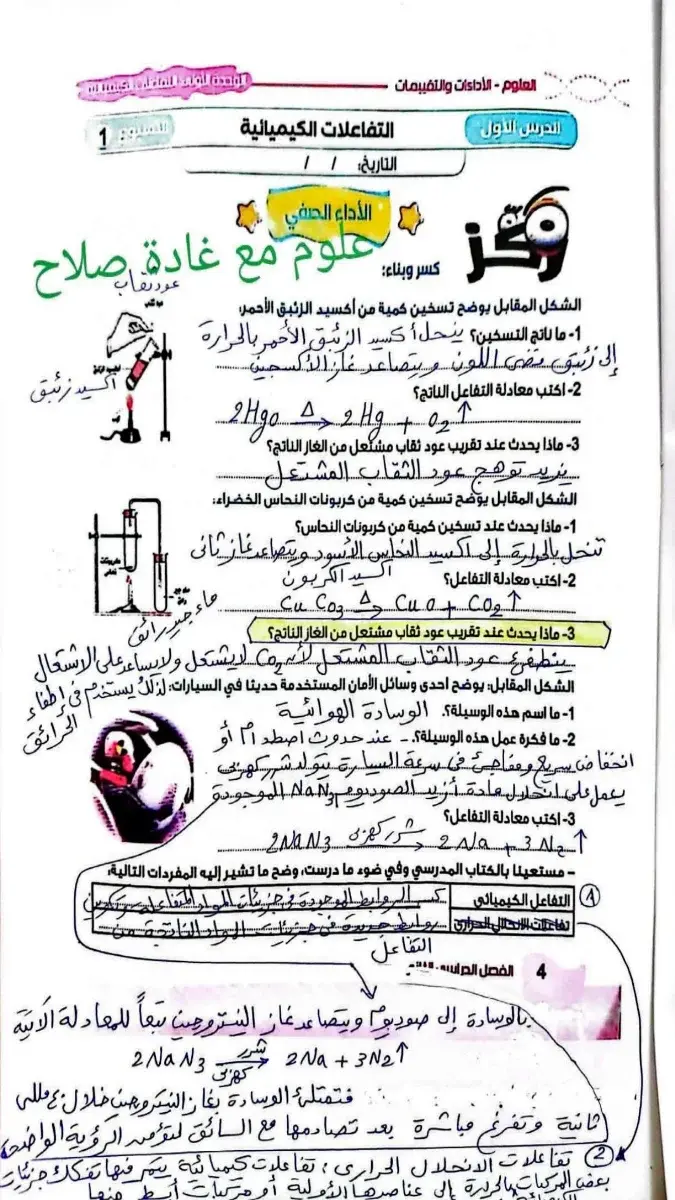 العلوم - الأداءات والتقييمات
الوحدة الأولى: التفاعلات الكيميائية
الدرس الأول
التفاعلات الكيميائية
1
التاريخ: / /
الأداء الصفي
ركز
علوم مع غادة صلاح
كسر وبناء:
عود ثقاب
الشكل المقابل يوضح تسخين كمية من أكسيد الزئبق الأحمر:
1- ما ناتج التسخين؟ ينحل أكسيد الزئبق الأحمر بالحرارة
إلى زئبق فضى اللون ويتصاعد غاز الأكسجين
اكسيد زئبق
2- اكتب معادلة التفاعل الناتج؟
2HgO Δ→ 2Hg + O2↑
3- ماذا يحدث عند تقريب عود ثقاب مشتعل من الغاز الناتج؟
يزيد توهج عود الثقاب المشتعل
الشكل المقابل يوضح تسخين كمية من كربونات النحاس الخضراء:
1- ماذا يحدث عند تسخين كمية من كربونات النحاس؟
تنحل بالحرارة إلى اكسيد النحاس الأسود ويتصاعد غاز ثانى
اكسيد الكربون
2- اكتب معادلة التفاعل؟
CuCO3 Δ→ CuO + CO2↑
ماء جير رائق
3- ماذا يحدث عند تقريب عود ثقاب مشتعل من الغاز الناتج؟
ينطفئ عود الثقاب المشتعل لأنه CO2 لا يشتعل ولا يساعد على الاشتعال
لذلك يستخدم فى إطفاء
الحرائق
الشكل المقابل: يوضح احدى وسائل الأمان المستخدمة حديثا في السيارات:
1- ما اسم هذه الوسيلة؟. الوسادة الهوائية
2- ما فكرة عمل هذه الوسيلة؟. - عند حدوث اصطدام أو
انخفاض سريع ومفاجئ فى سرعة السيارة يتولد شرر كهربى
يعمل على انحلال مادة أزيد الصوديوم NaN3 الموجودة
3- اكتب معادلة التفاعل؟
2NaN3 شرر كهربى→ 2Na + 3N2↑
- مستعينا بالكتاب المدرسي وفي ضوء ما درست، وضح ما تشير إليه المفردات التالية:
1
التفاعل الكيميائي
كسر الروابط الموجودة فى جزيئات المواد المتفاعلة وتكوين
تفاعلات الانحلال الحرارى
روابط جديدة فى جزيئات المواد الناتجة من
التفاعل
4
الفصل الدراسي
بالوسادة إلى صوديوم ويتصاعد غاز النيتروجين تبعاً للمعادلة الآتية
2NaN3 شرر كهربى→ 2Na + 3N2↑
فتمتلئ الوسادة بغاز النيتروجين خلال 40 مللى
ثانية وتفرغ مباشرة بعد تصادمها مع السائق لتؤمن الرؤية الواضحة
2 تفاعلات الانحلال الحرارى: تفاعلات كيميائية يتم فيها تفكك جزيئات
بعض المركبات بالحرارة إلى عناصرها الأولية أو مركبات أبسط منها